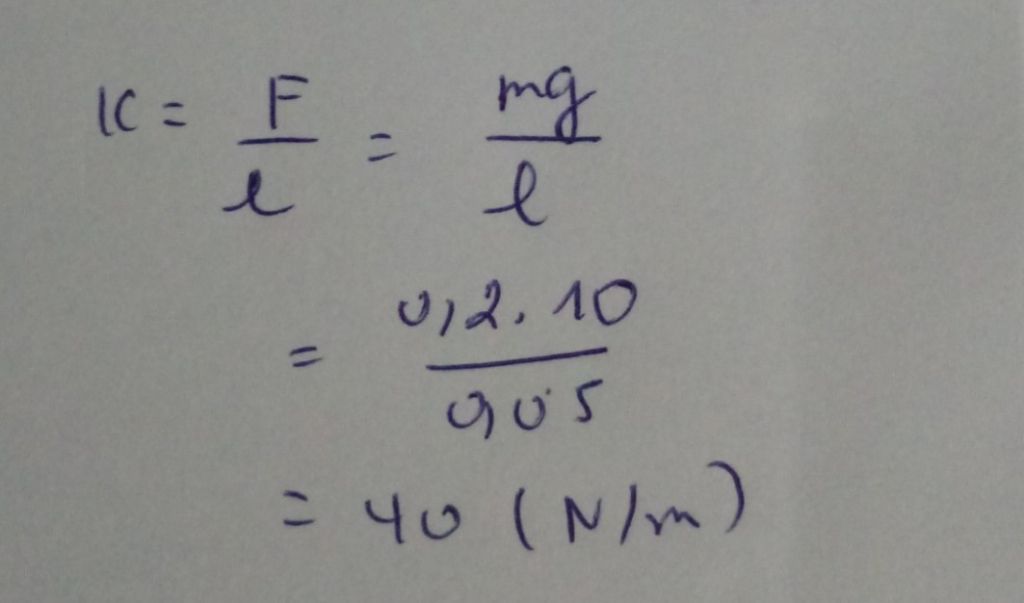 K = F/l = mg/l
= 0,2. 10/0,05
= 40 (N/m)